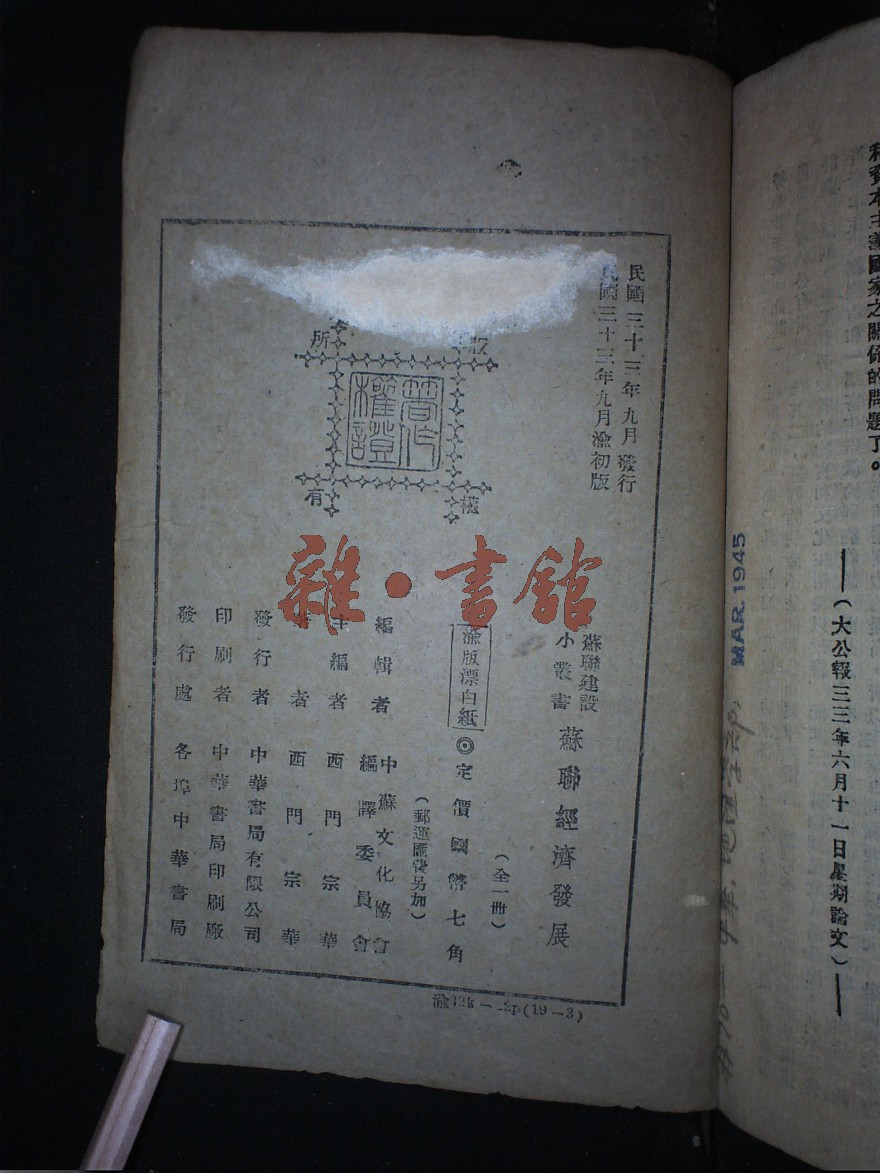 和資本主義國家之關係的問題了。
——(大公報三三年六月十一日星期論文)——
MAR. 1945
民國三十三年九月發行
民國三十三年九月渝初版
權
所
有
著作權證
雜·書館
蘇聯建設
小叢書
蘇聯經濟發展
(全一冊)
渝版漂白紙
◎定價國幣七角
(郵運匯費另加)
編輯者 中蘇文化協會
編譯委員會
主編者 西門宗華
著者 西門宗華
發行者 中華書局有限公司
印刷者 中華書局印刷廠
發行處 各埠中華書局
(19-3)